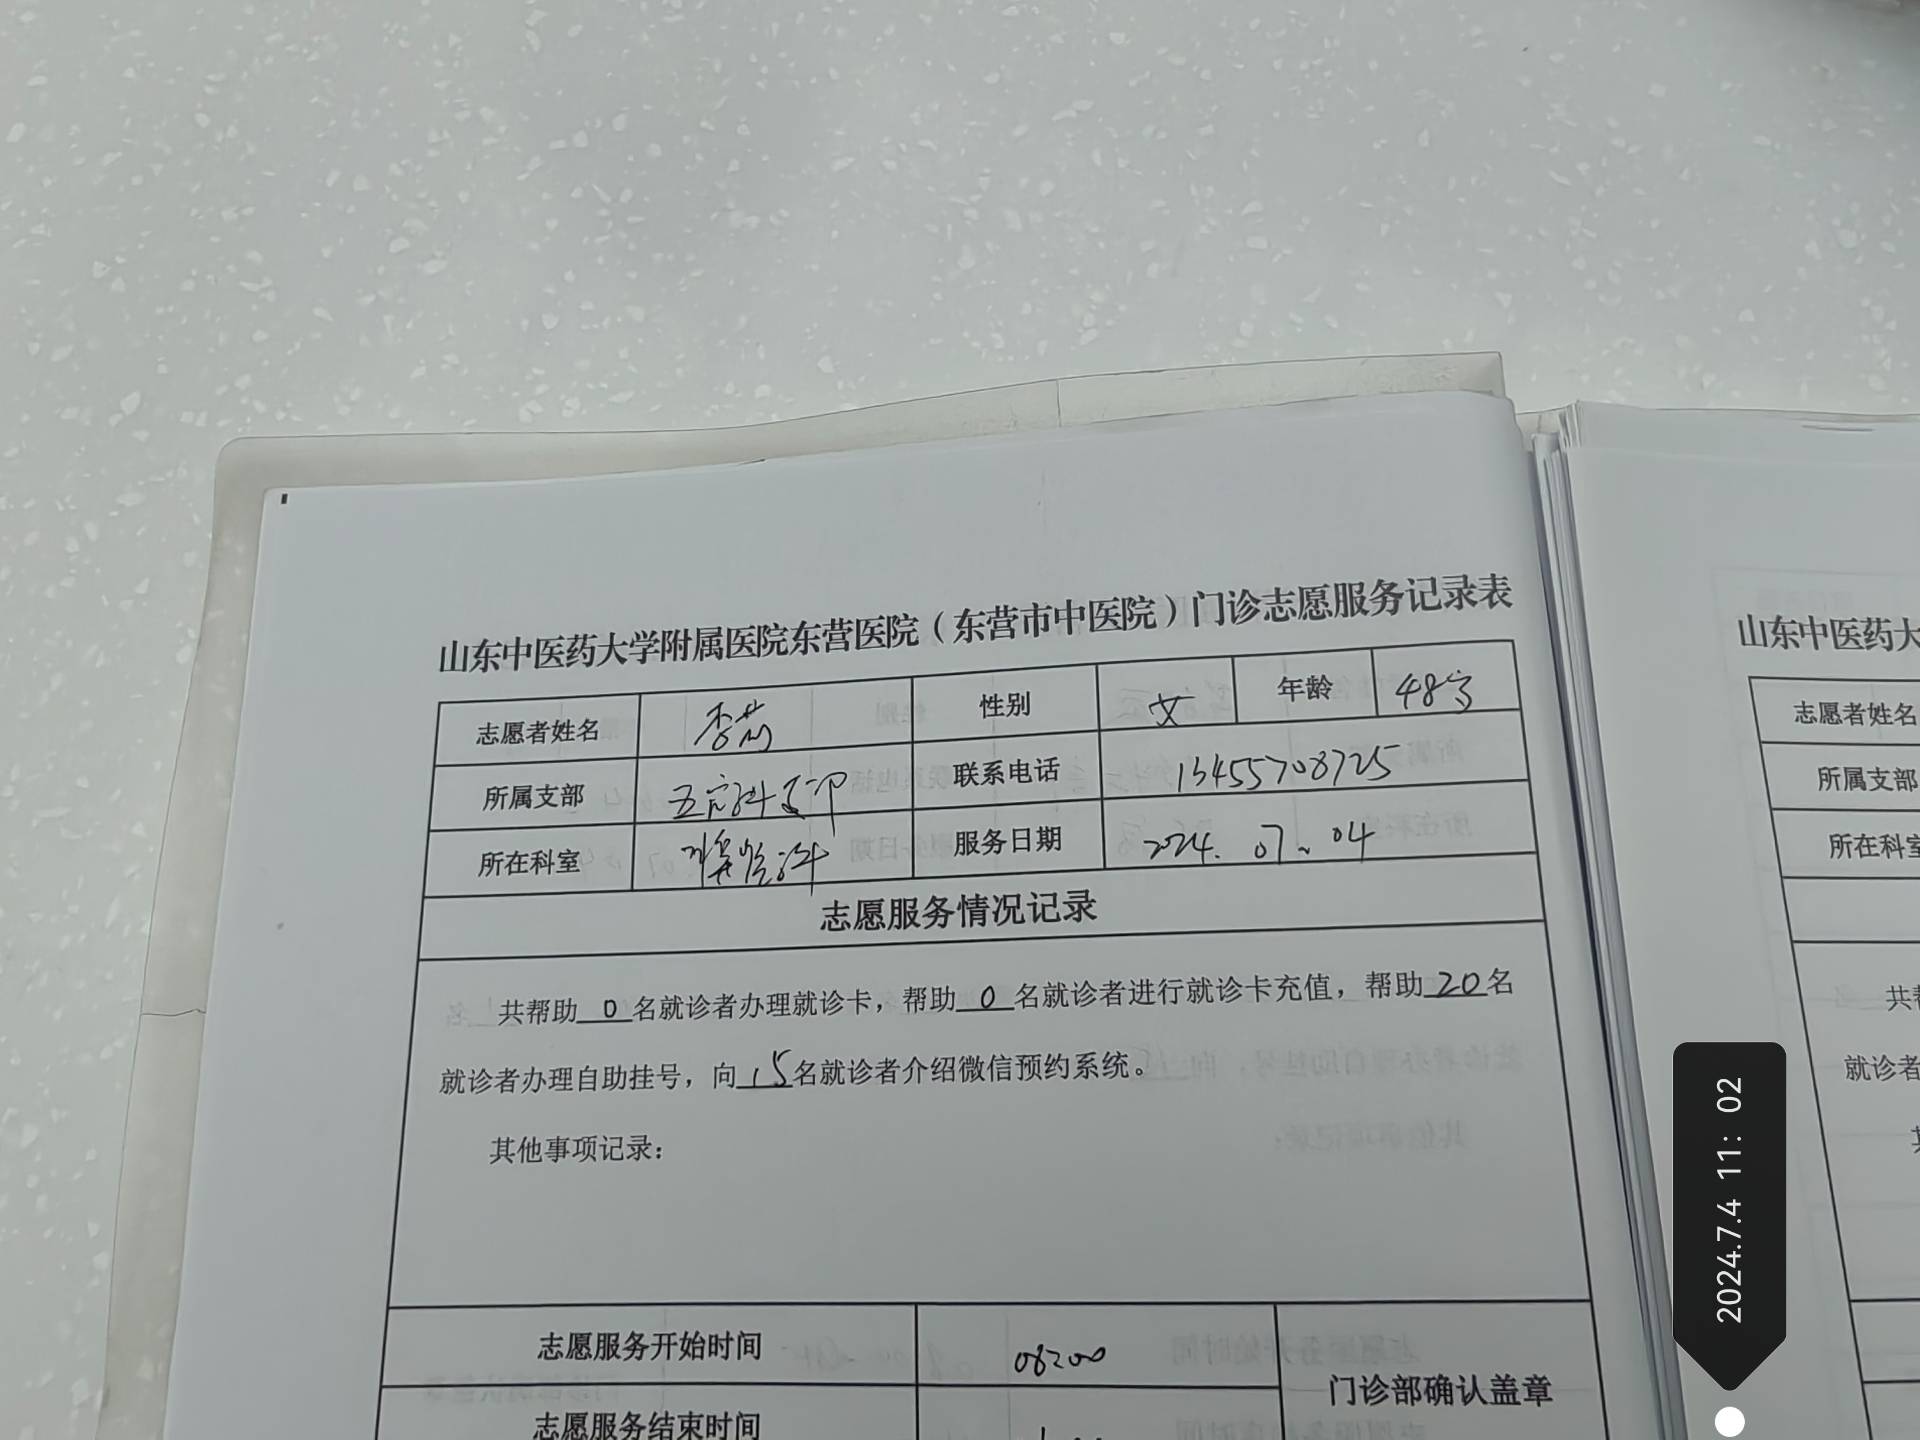 山东中医药大学附属医院东营医院（东营市中医院）门诊志愿服务记录表
志愿者姓名 李莉 性别 女 年龄 48岁
所属支部 五官科支部 联系电话 13455708725
所在科室 服务日期 2024.07.04
志愿服务情况记录
共帮助0名就诊者办理就诊卡，帮助0名就诊者进行就诊卡充值，帮助20名
就诊者办理自助挂号，向15名就诊者介绍微信预约系统。
其他事项记录：
志愿服务开始时间 08:00
门诊部确认盖章
志愿服务结束时间
山东中医药大
志愿者姓名
所属支部
所在科室
共
就诊者
2024.7.4 11:02